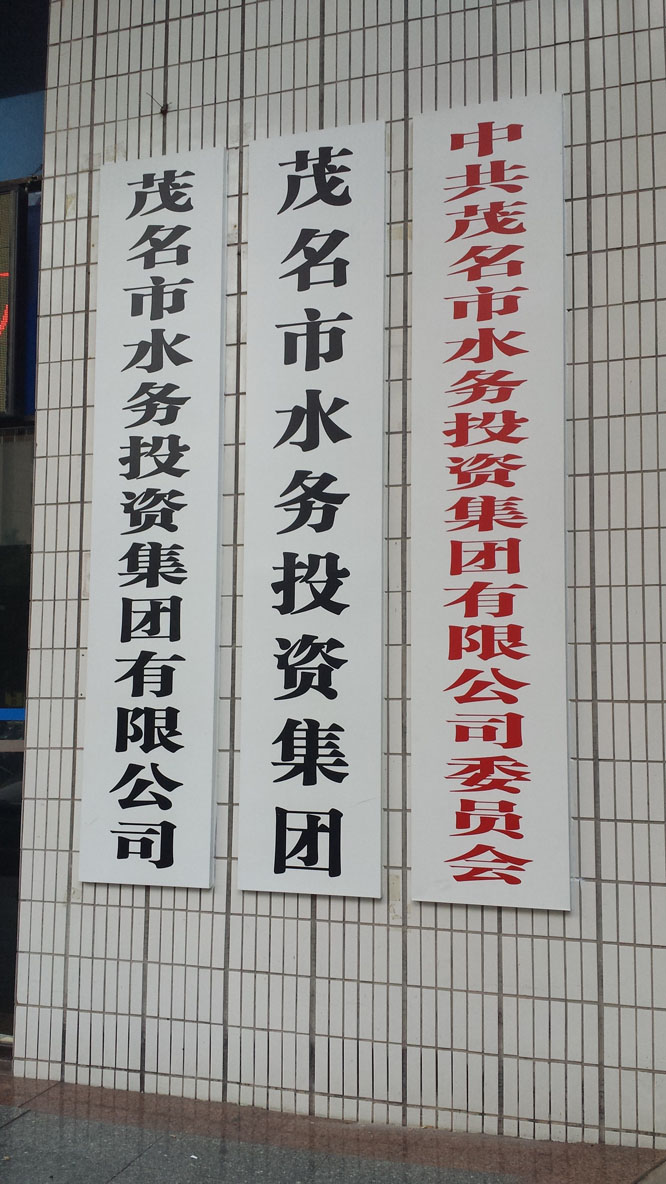 中共茂名市水务投资集团有限公司委员会
茂名市水务投资集团
茂名市水务投资集团有限公司